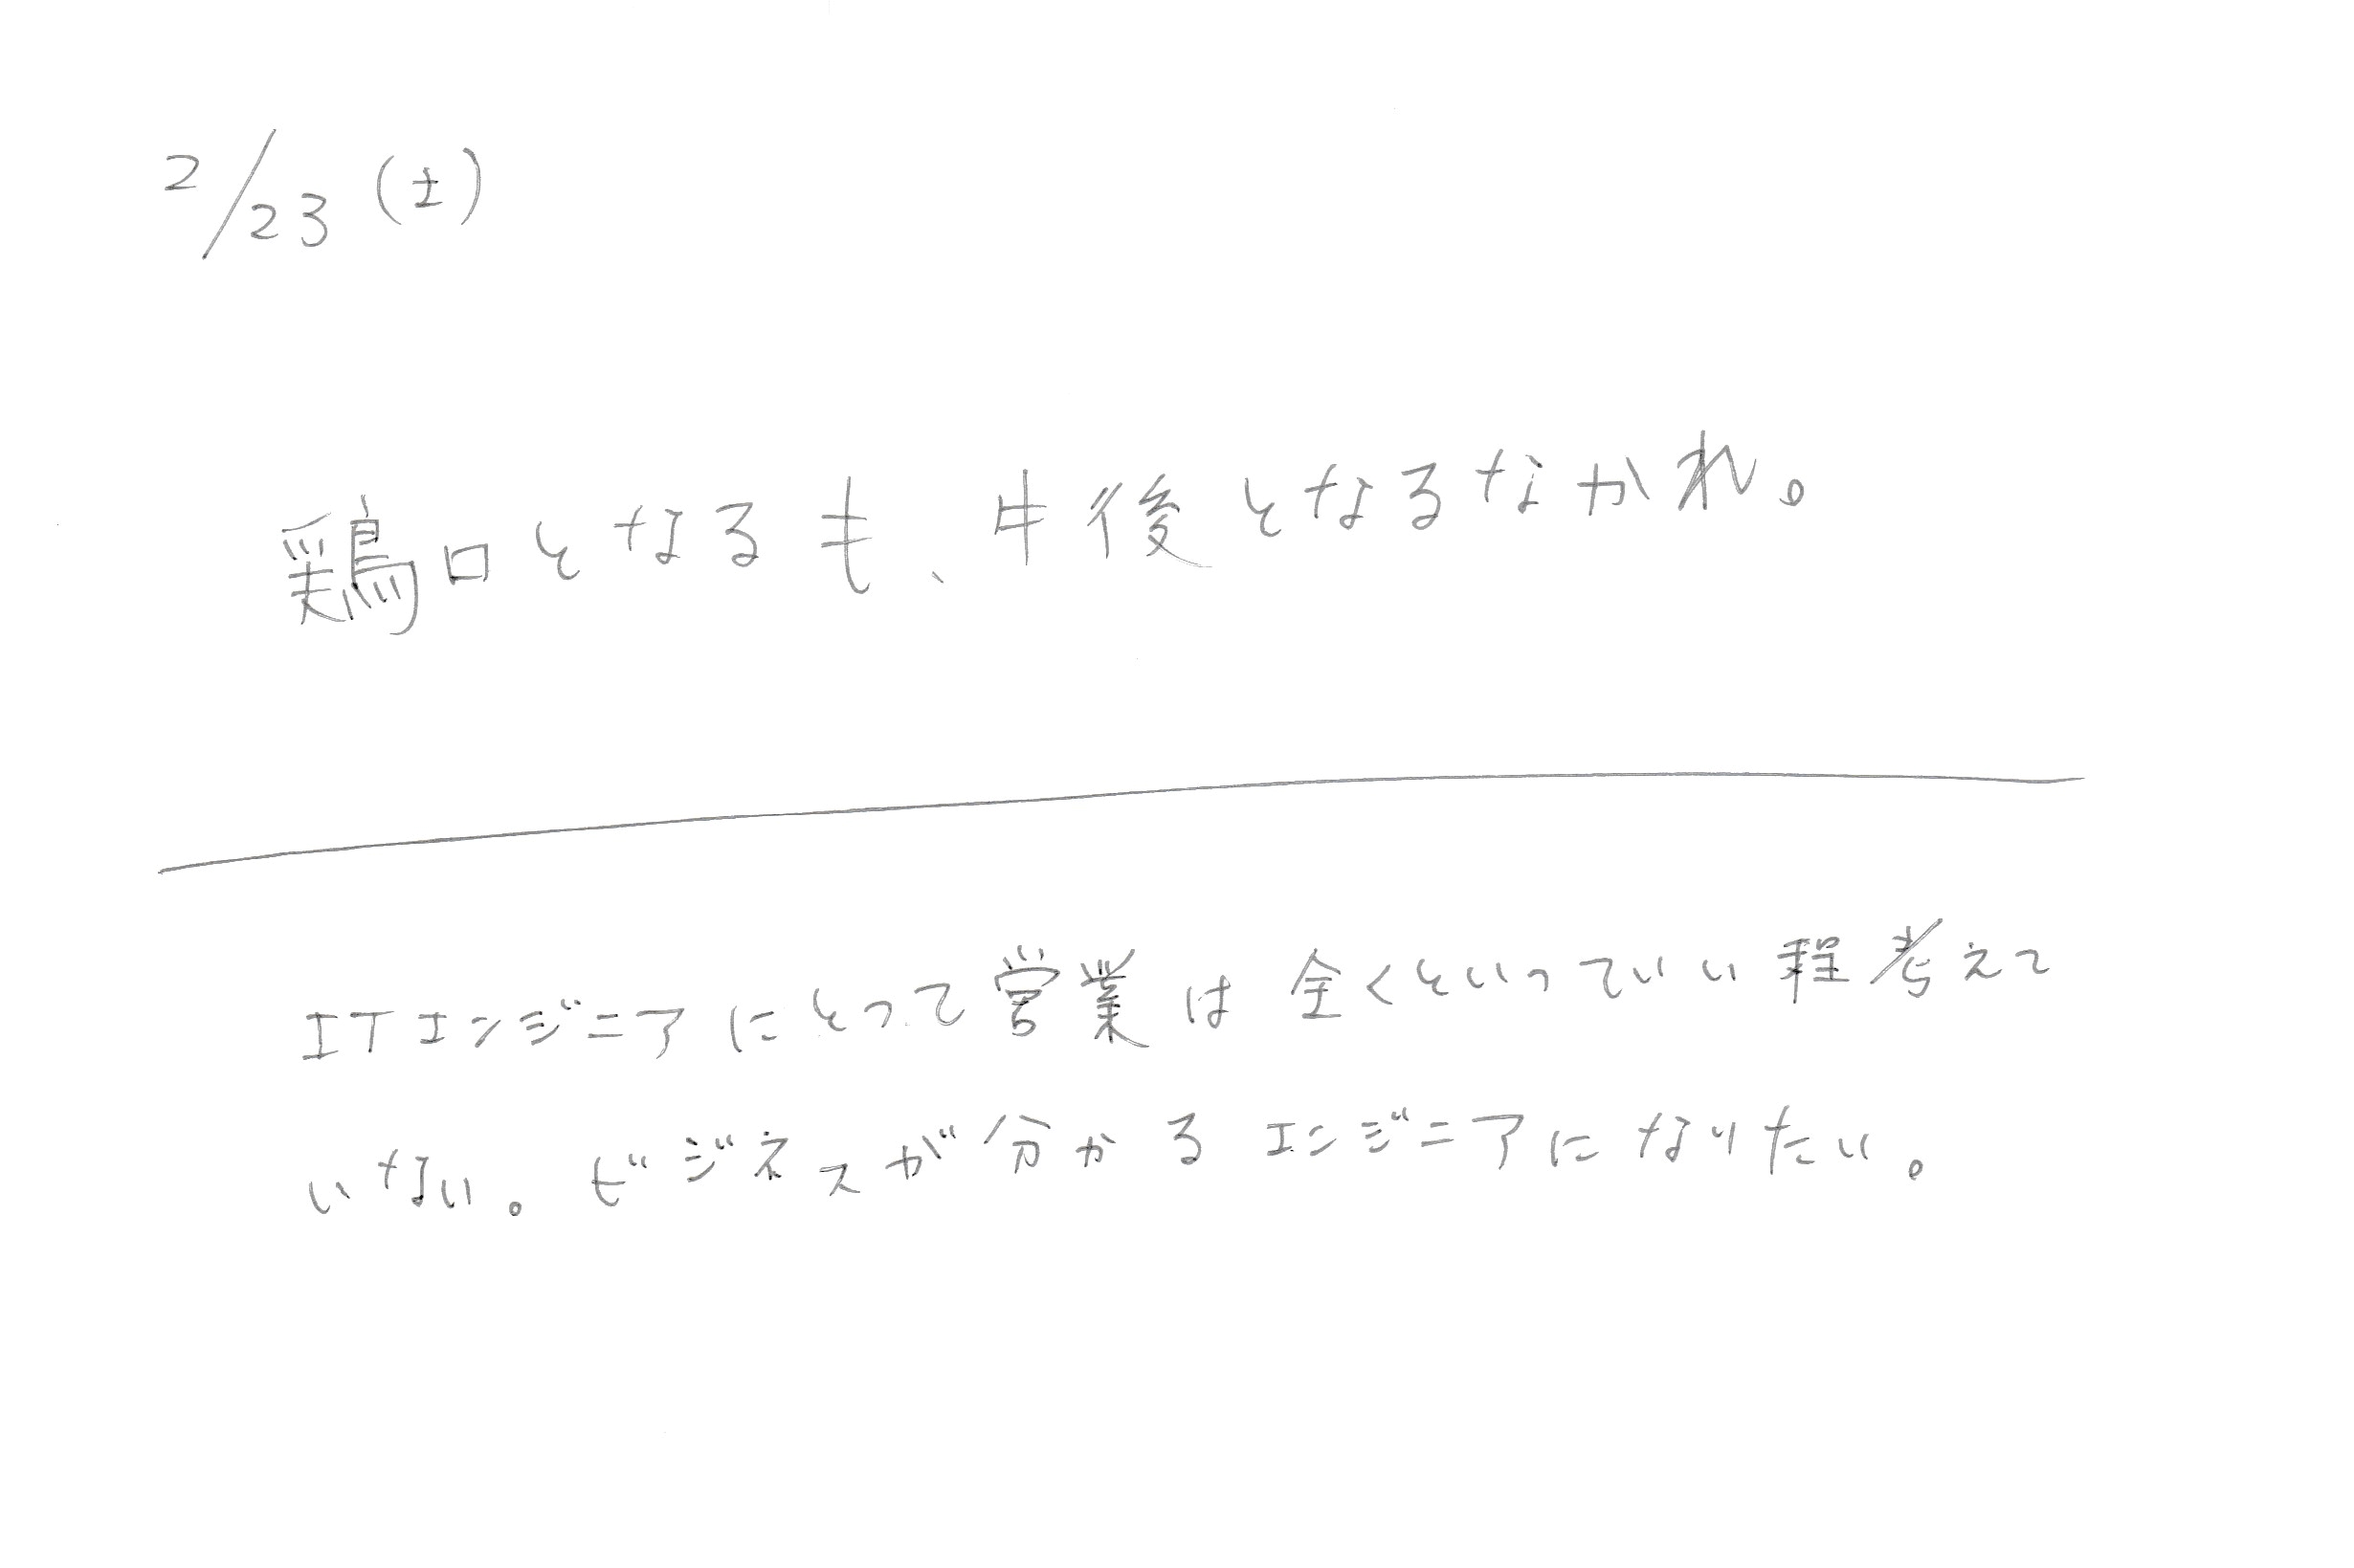 2/23 (土)
鶏口となるも、牛後となるなかれ。
ITエンジニアにとって営業は全くといっていい程考えて
いない。ビジネスが分かるエンジニアになりたい。